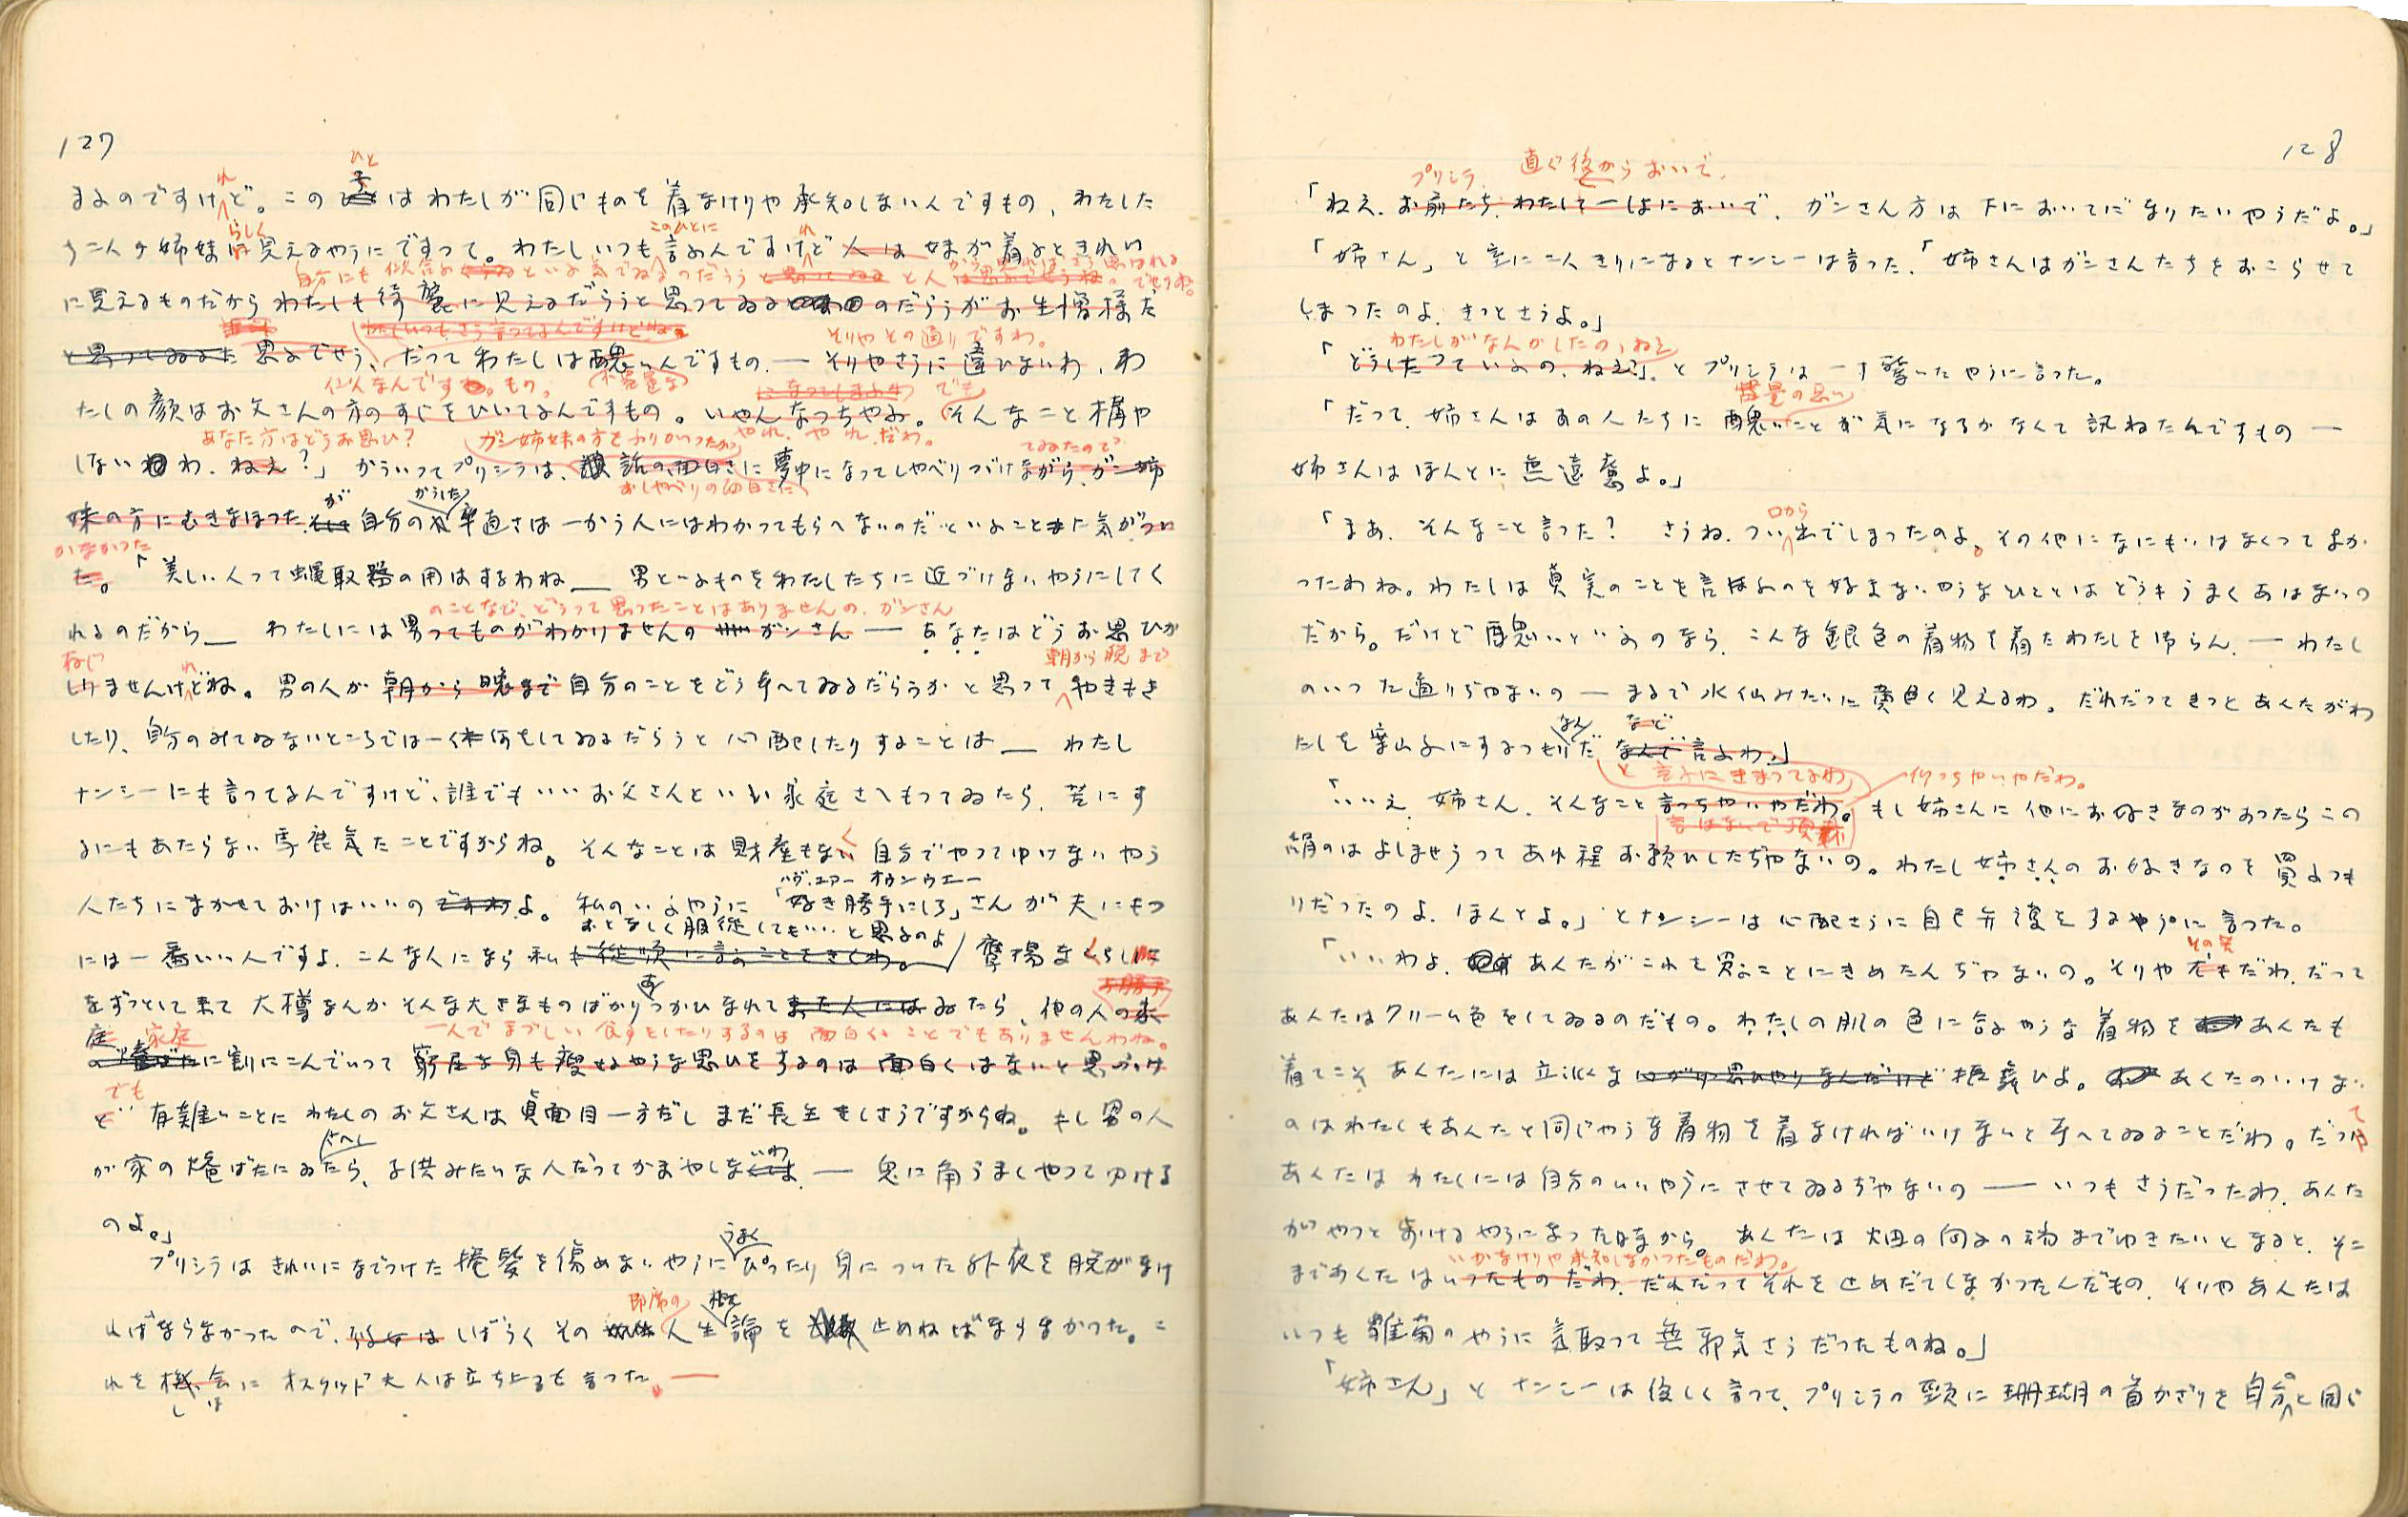 127
まるのですけれど。この子はわたしが同じものを着なけりや承知しないんですもの、わたした
ち二人が姉妹らしく見えるやうにですつて。わたしいつも言ふんですけれど 人は 妹が着るときれい
自分にも似合ふといふ気でゐるのだらうと人
に見えるものだからわたしも綺麗に見えるだらうと思つてゐるのだらうがお生憎様だ
わたしいつもさう言つてるんですけどね
そりやその通りですわ。
と思つてゐるだ 思ふでせう、だつてわたしは醜いんですもの ― そりやさうに違ひないわ、わ
似なんですもの。
不器量な
になつてしまふわ でも
たしの顔はお父さんの方のすぢをひいてるんですもの。いやんなつちやふ。そんなこと構や
あなた方はどうお思ひ?
ガン姉妹の方をふりかへつたが やれ、やれ、だわ。
てゐたので
しないわ、ねえ?」 かういつてプリシラは、話の面白さに夢中になつてしやべりつづけながら、ガン姉
おしやべりの面白さに
がかうした
妹の方にむきなほつた 自分の率直さは一かう人にはわかつてもらへないのだといふことに気がつい
かなかつた
た。「美しい人つて蝿取器の用はするわね ― 男といふものをわたしたちに近づけないやうにしてく
のことなど、どうつて思つたことはありませんの、ガンさん
れるのだから ― わたしには男つてものがわかりませんの ガンさん ― あなたはどうお思ひか
存じ
朝から晩まで
しりませんけれどね。男の人が朝から晩まで自分のことをどう考へてゐるだらうかと思つてやきもき
したり、自分のみてゐないところでは一体何をしてゐるだらうと心配したりすることは ― わたし
ナンシーにも言つてるんですけど、誰でもいいお父さんといい家庭さへもつてゐたら、苦にす
るにもあたらない馬鹿気たことですからね。そんなことは財産もなく自分でやつてゆけないやう
人たちにまかせておけばいいのですわよ。私のいふやうに「好き勝手にしろ」さんが夫にもつ
ハヴ・ユアー オウンウエー
おとなしく服従してもいいと思ふのよ
には一番いい人ですよ、こんな人になら私も従順に言ふことをきくわ。 贅沢なくらし
をずつとして来て大樽なんかそんな大きなものばかりつかひなれてゐたら、他の人の家
庭 家庭
一人でまづしい食事をしたりするのは面白いことでもありませんわね。
に割にこんでいつて窮屈な身も痩せるやうな思ひをするのは面白くはないと思ふけ
でも
ど 有難いことにわたしのお父さんは真面目一方だしまだ長生きしさうですからね。もし男の人
さへし
が家の炉ばたにゐたら、子供みたいな人だつてかまやしないわ ― 兎に角うまくやつてゆける
のよ。」
うまく
プリシラはきれいになでつけた捲髪を傷めないやうにぴつたり身についた外衣を脱がなけ
即席の
ればならなかつたので、彼女は しばらくその 人生論を 止めねばならなかつた。こ
れを機会に オスグッド夫人は立ち上るも言つた。―
128
プリシラ、 直ぐ後からおいで、
「ねえ、お前たち、わたしと一しよにおいで、ガンさん方は下においでになりたいやうだよ。」
「姉さん」と室に二人きりになるとナンシーは言つた、「姉さんはガンさんたちをおこらせて
しまつたのよ、きつとさうよ。」
わたしがなんかしたの、ねえ
「どうしたつていふの、ねえ?」とプリシラは一寸驚いたやうに言つた。
器量の悪い
「だつて、姉さんはあの人たちに醜いことが気になるかなんて訊ねたんですもの ―
姉さんはほんとに無遠慮よ。」
口から
「まあ、そんなこと言つた? さうね、つい出てしまつたのよ。その他になにもいはなくつてよか
つたわね。わたしは真実のことを言はれるのを好まないやうなひととはどうもうまくあはないの
だから。だけど醜いといふのなら、こんな銀色の着物を着たわたしを御らん、― わたし
のいつた通りぢやないの ― まるで水仙みたいに黄色く見えるわ。だれだつてきつとあんたがわ
なん など
たしを案山子にするつもりだ なんて言ふわ。」
と言ふにきまつてるわ
仰つちやいやだわ。
「いいえ、姉さん、そんなこと言つちやいやだわ。もし姉さんに他にお好きなのがあつたらこの
言はないで頂戴
絹のはよしませうつてあれ程お願ひしたぢやないの。わたし姉さんのお好きなのを買ふつも
りだつたのよ、ほんとよ。」とナンシーは心配さうに自己弁護をするやうに言つた。
その筈
「いいわよ、あんたがこれを買ふことにきめたんぢやないの。そりや だわ、だつて
あんたはクリーム色をしてゐるのだもの。わたしの肌の色に合ふやうな着物を あんたも
着てこそ あんたには立派な 振舞ひよ。あんたのいけない
のはわたしもあんたと同じやうな着物を着なければいけないと考へてゐることだわ。だつて
あんたはわたしには自分のいいやうにさせてゐるぢやないの ― いつもさうだつたわ、あんた
がやつと歩けるやうになつた時から。あんたは畑の向ふの端までゆきたいとなると、そこ
いかなけりや承知しなかつたものだわ。
まであんたはいつたものだわ、だれだつてそれを止めだてしなかつたんだもの、そりやあんたは
いつも雛菊のやうに気取つて無邪気さうだつたものね。」
「姉さん」とナンシーは優しく言つて、プリシラの頸に珊瑚の首かざりを自分と同じ